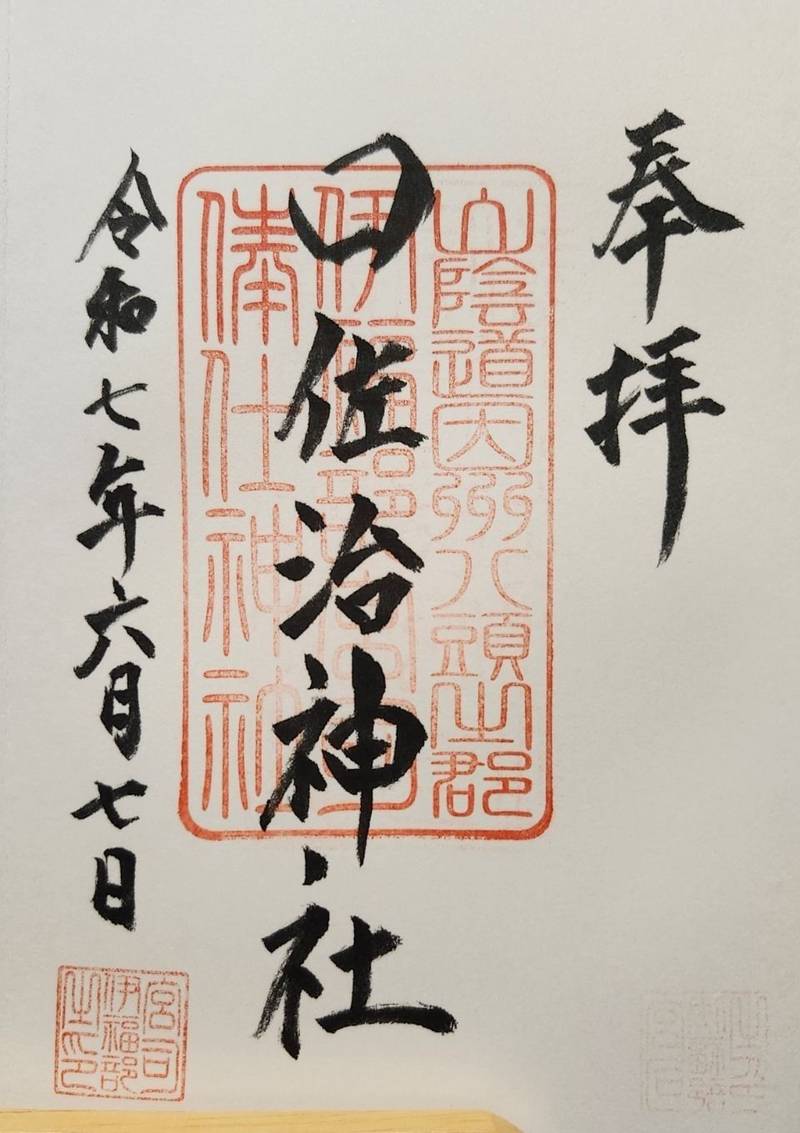 奉拝
山陰道因州八頭之郡
口佐治神社
伊福部
俸仕神社
令和七年六月七日
宮司
伊福部
之印